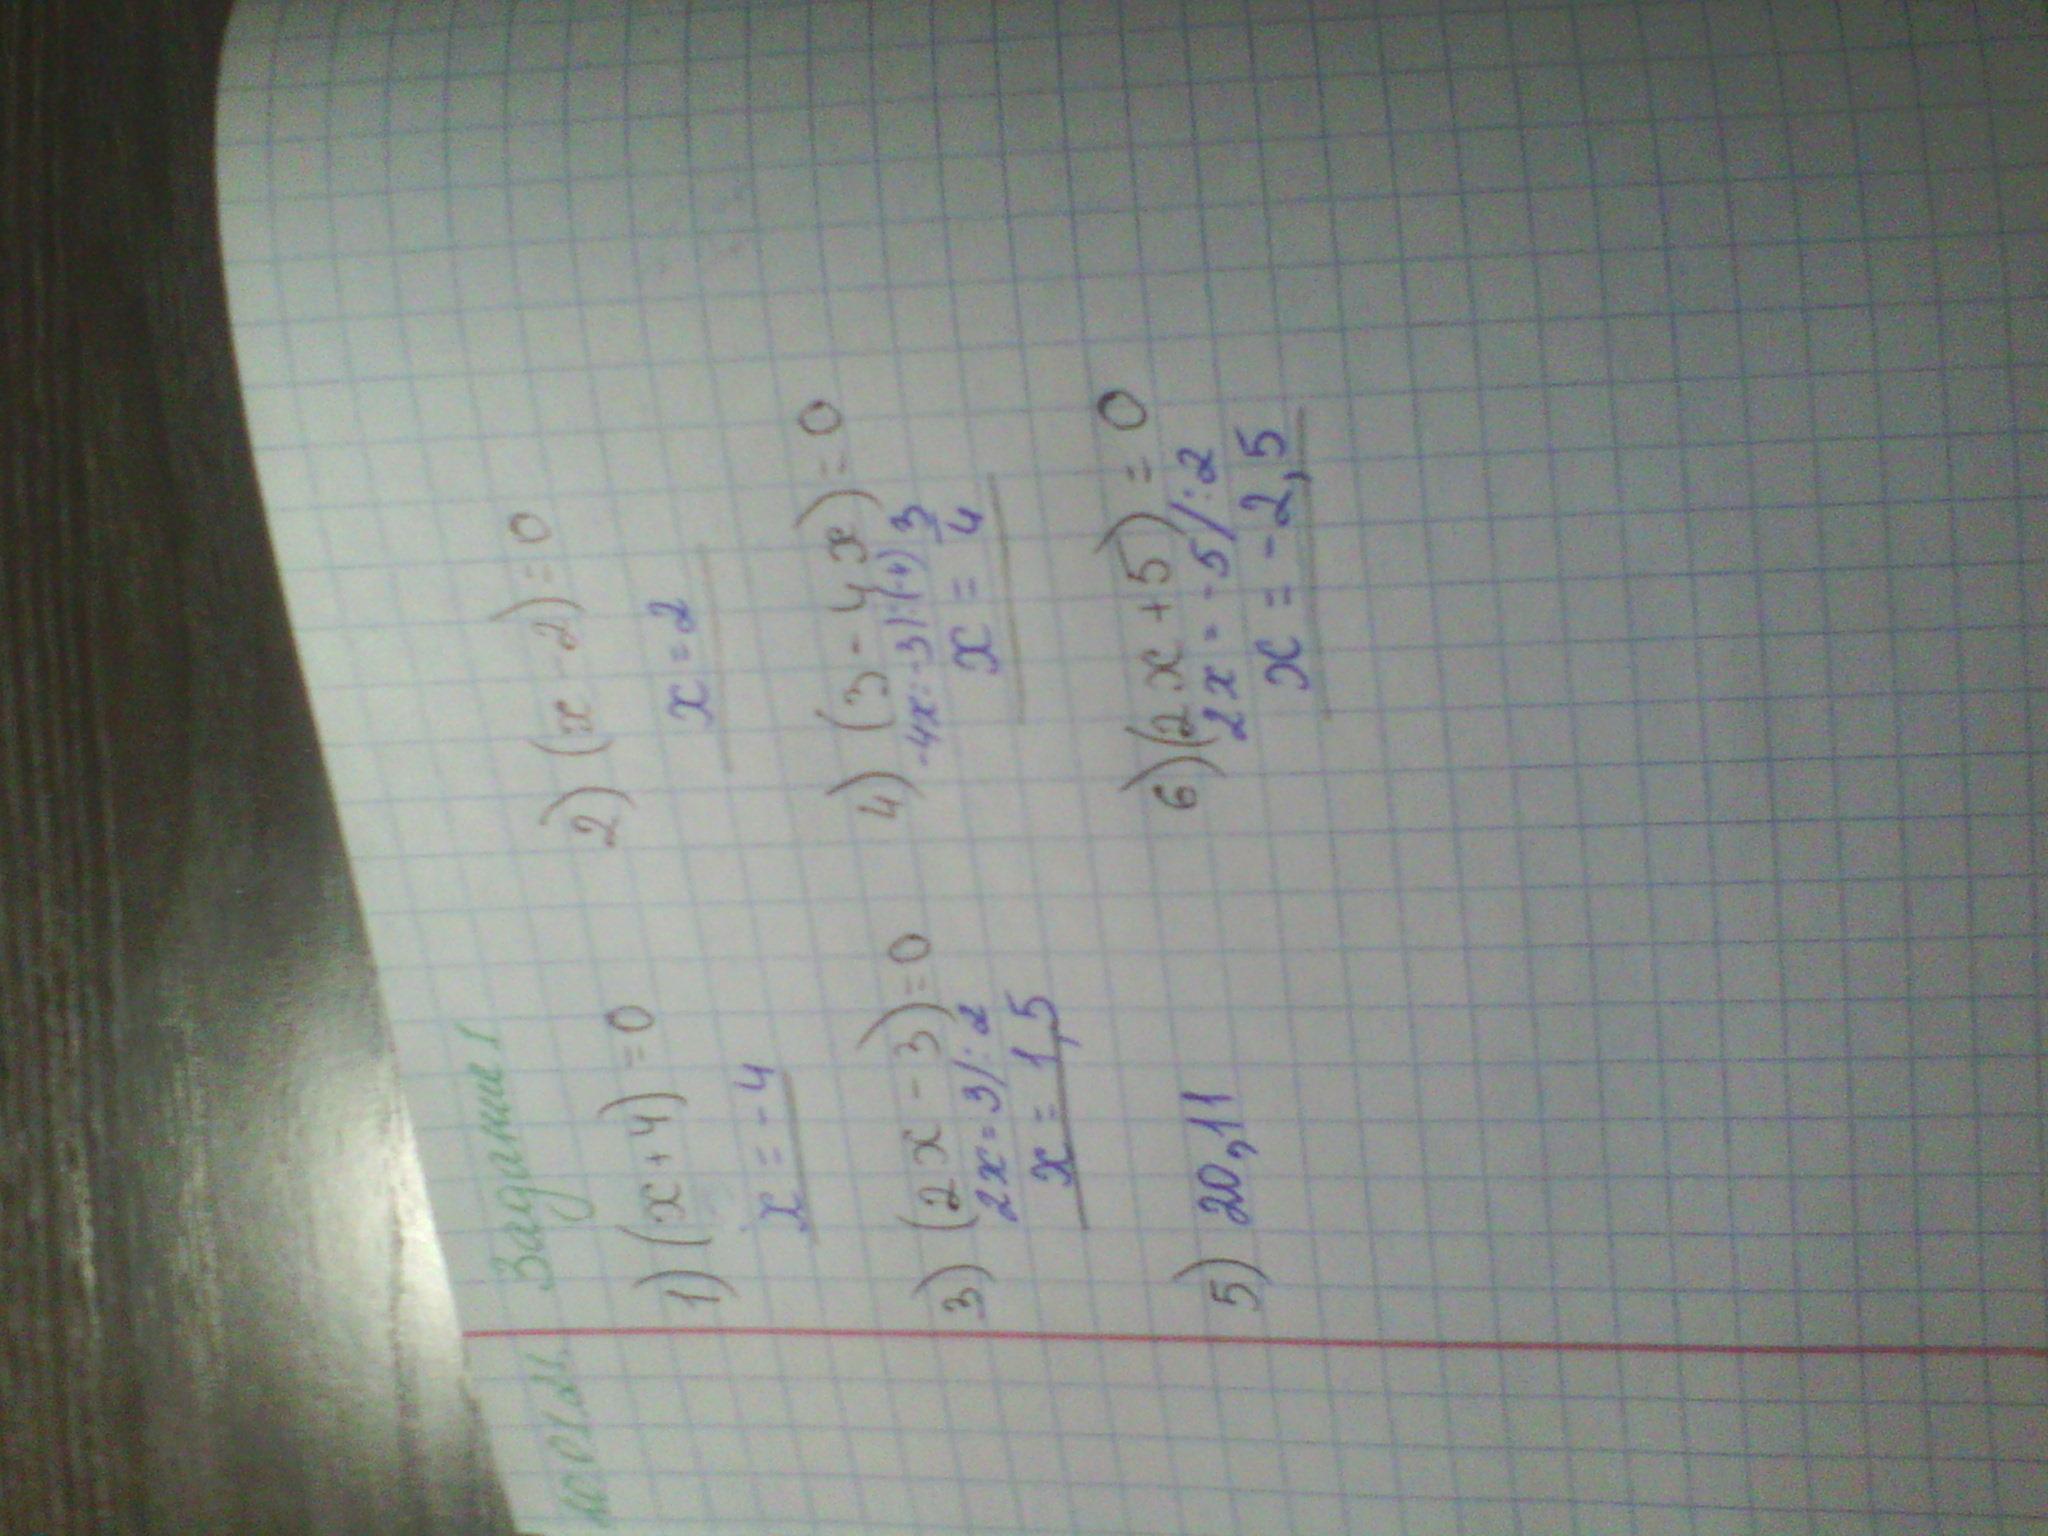 10.01.21. Задание 1
1) (x+4)=0
x = -4
2) (x-2)=0
x = 2
3) (2x-3)=0
2x=3/:2
x = 1,5
4) (3-4x)=0
-4x=-3/:(-4)
x = 3/4
5) 20,11
6) (2x+5)=0
2x=-5/:2
x = -2,5